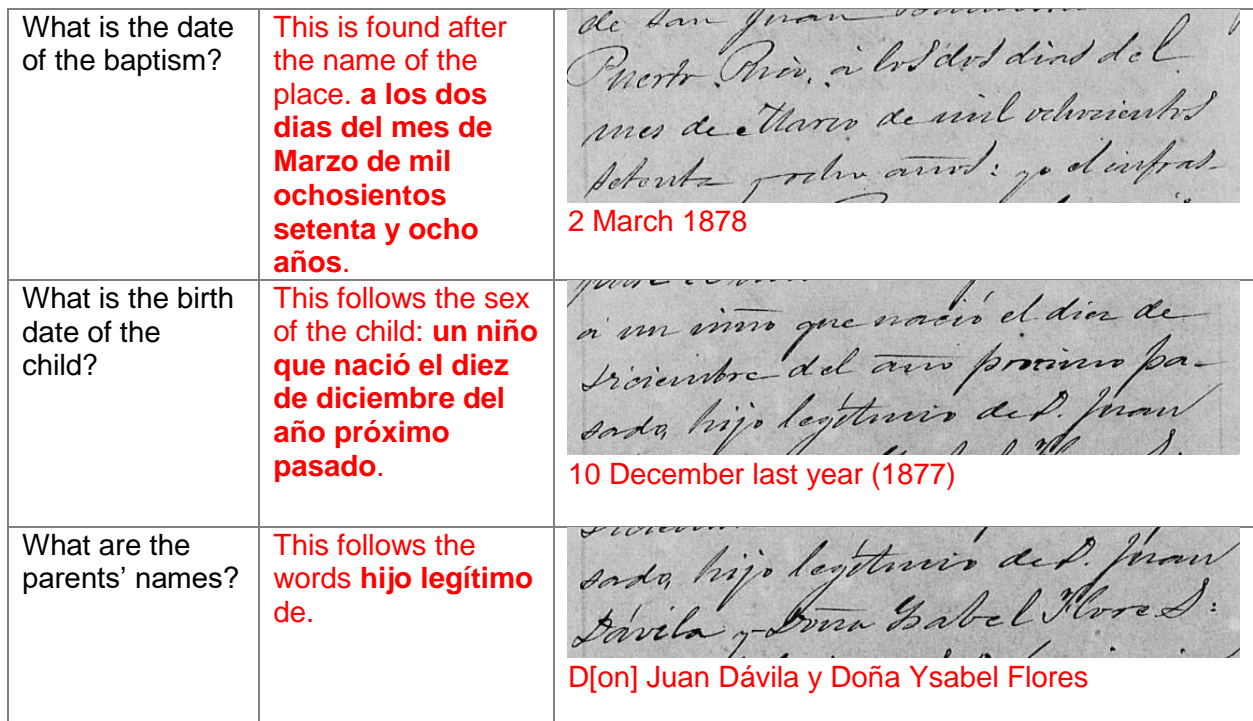 What is the date
of the baptism?
This is found after
the name of the
place. a los dos
dias del mes de
Marzo de mil
ochosientos
setenta y ocho
años.
de San Juan
Puerto Rico, a los dos dias del
mes de Marzo de mil ochocientos
setenta y ocho años: yo el infras-
2 March 1878
What is the birth
date of the
child?
This follows the sex
of the child: un niño
que nació el diez
de diciembre del
año próximo
pasado.
a un niño que nació el diez de
diciembre del año procsimo pa-
sado, hijo legítimo de D. Juan
10 December last year (1877)
What are the
parents’ names?
This follows the
words hijo legítimo
de.
sado, hijo legítimo de D. Juan
Dávila y Doña Ysabel Flores:
D[on] Juan Dávila y Doña Ysabel Flores